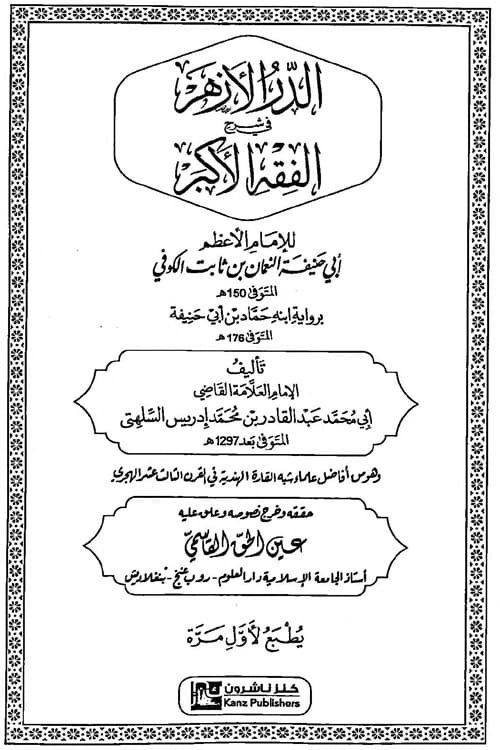 الدر الأزهر
في شرح
الفقه الأكبر
للإمام الأعظم
أبي حنيفة النعمان بن ثابت الكوفي
المتوفى 150هـ
برواية ابنه حماد بن أبي حنيفة
المتوفى 176هـ
تأليف
الإمام العلامة القاضي
أبي محمد عبد القادر بن محمد إدريس السلهتي
المتوفى بعد 1297هـ
وهو من أفاضل علماء شبه القارة الهندية في القرن الثالث عشر الهجري
حققه وخرج نصوصه وعلق عليه
عين الحق القاسمي
أستاذ الجامعة الإسلامية دار العلوم - روب غنج - بنغلاديش
يُطْبَعُ لأوَّلِ مَرَّة
كنز ناشرون
Kanz Publishers